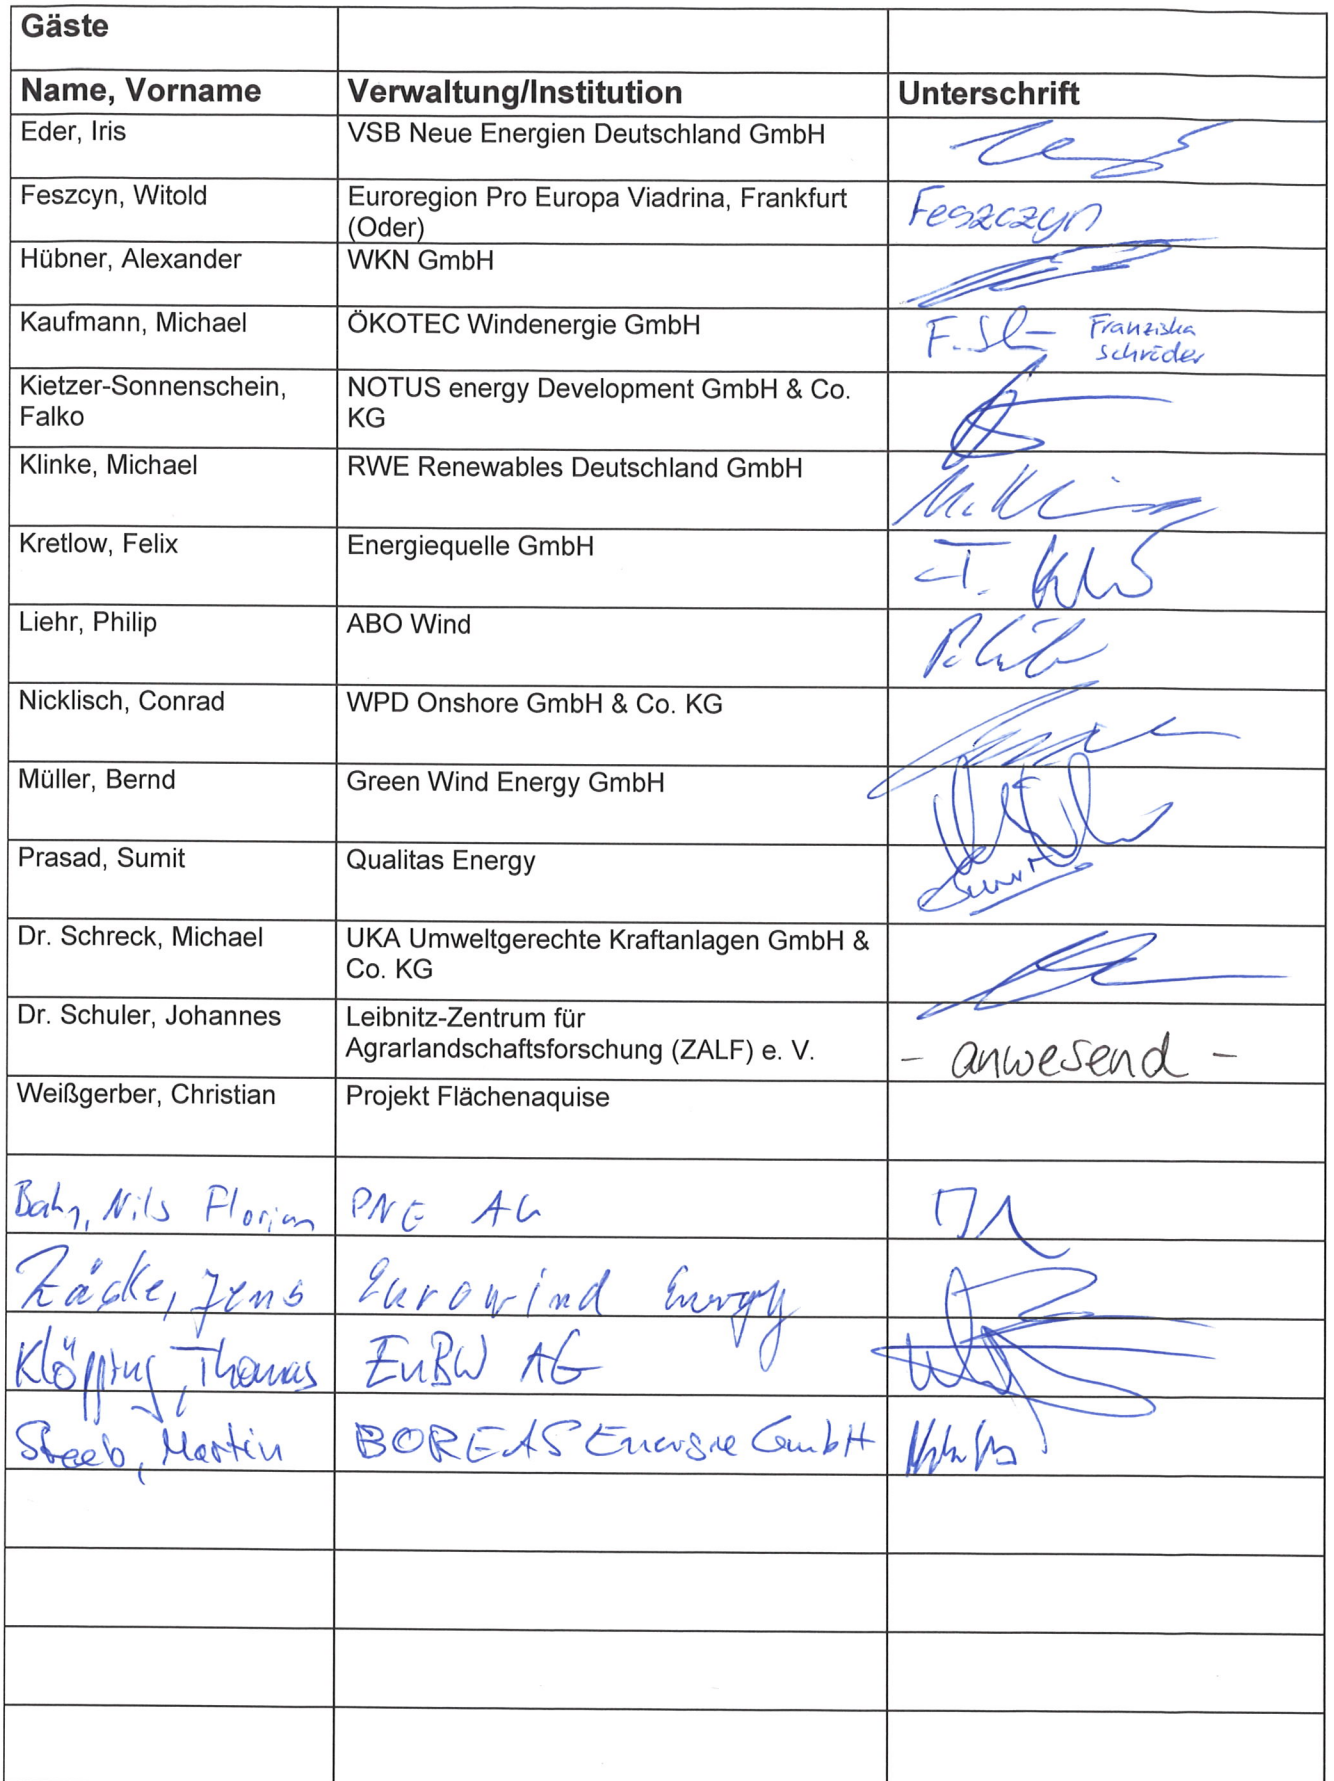 Gäste
Name, Vorname Verwaltung/Institution Unterschrift
Eder, Iris VSB Neue Energien Deutschland GmbH
Feszcyn, Witold Euroregion Pro Europa Viadrina, Frankfurt Feszczyn
(Oder)
Hübner, Alexander WKN GmbH
Kaufmann, Michael ÖKOTEC Windenergie GmbH Franziska
Schröder
Kietzer-Sonnenschein, NOTUS energy Development GmbH & Co.
Falko KG
Klinke, Michael RWE Renewables Deutschland GmbH
Kretlow, Felix Energiequelle GmbH
Liehr, Philip ABO Wind
Nicklisch, Conrad WPD Onshore GmbH & Co. KG
Müller, Bernd Green Wind Energy GmbH
Prasad, Sumit Qualitas Energy
Dr. Schreck, Michael UKA Umweltgerechte Kraftanlagen GmbH &
Co. KG
Dr. Schuler, Johannes Leibnitz-Zentrum für
Agrarlandschaftsforschung (ZALF) e. V. - anwesend -
Weißgerber, Christian Projekt Flächenaquise
Bahn, Nils Florian PNE AG
Zäcke, Jens Eurowind Energy
Klöpping, Thomas EnBW AG
Streeb, Martin BOREAS Energie GmbH